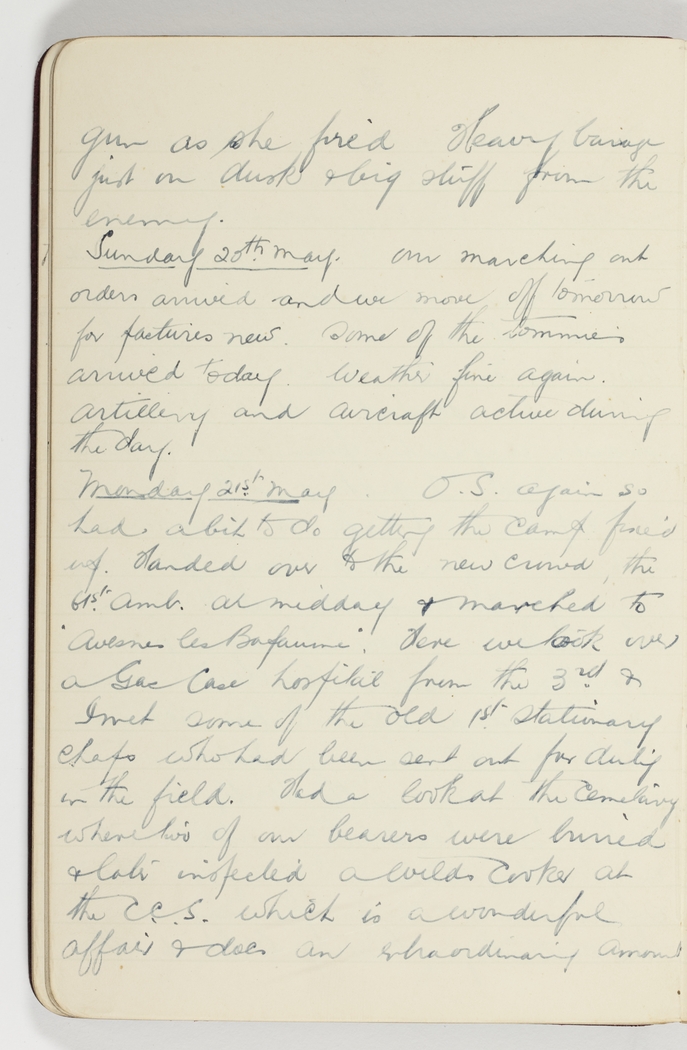 gun as she fired Heavy barage
just on dusk & big stuff from the
enemy.
Sunday 20th May. our marching out
orders arrived and we move off tomorrow
for factures new. Some of the tommies
arrived today. Weather fine again.
Artillery and aircraft active during
the day.
Monday 21st May. O.S. again so
had a bit to do getting the camp fixed
up. Handed over to the new crowd, the
61st Amb. at midday & marched to
"Avesnes les Bapaume". Here we took over
a Gas Case hospital from the 3rd &
I met some of the old 1st Stationary
chaps who had been sent out for duty
in the field. Had a look at the Cemetary
where two of our bearers were buried
& later inspected a Wilds Cooker at
the C.C.S. which is a wonderful
affair & does an extraordinary amount